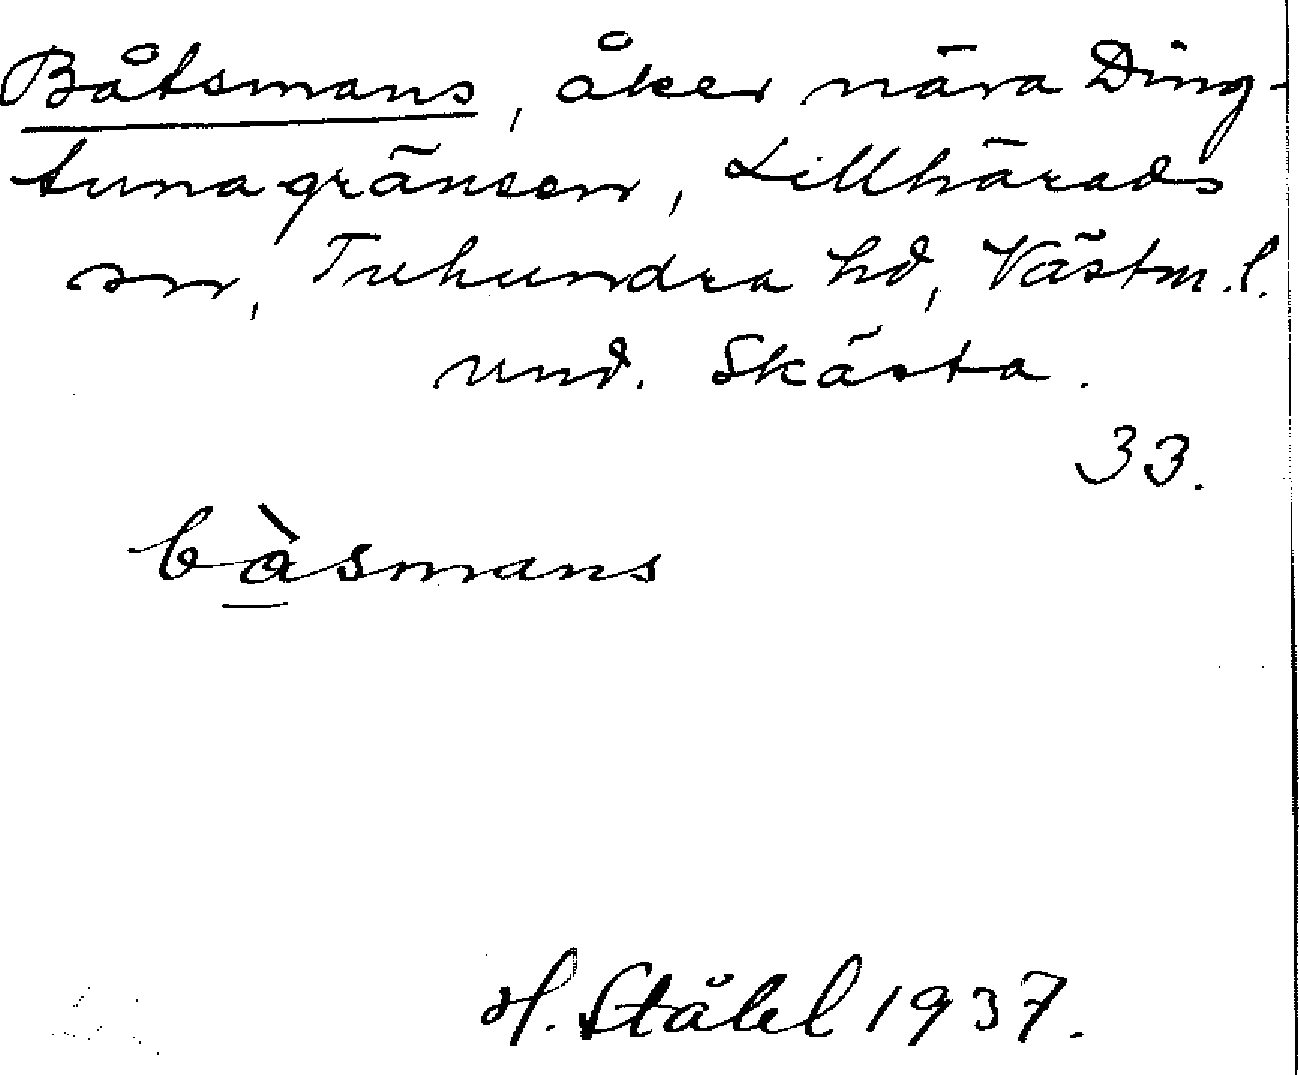 Båtsmans, åker nära Ding-
tunagränsen, Lillhärads
sn, Tuhundra hd, Västm. l.
und. Skästa.
33.
bàsmans
H. Ståhl 1937.